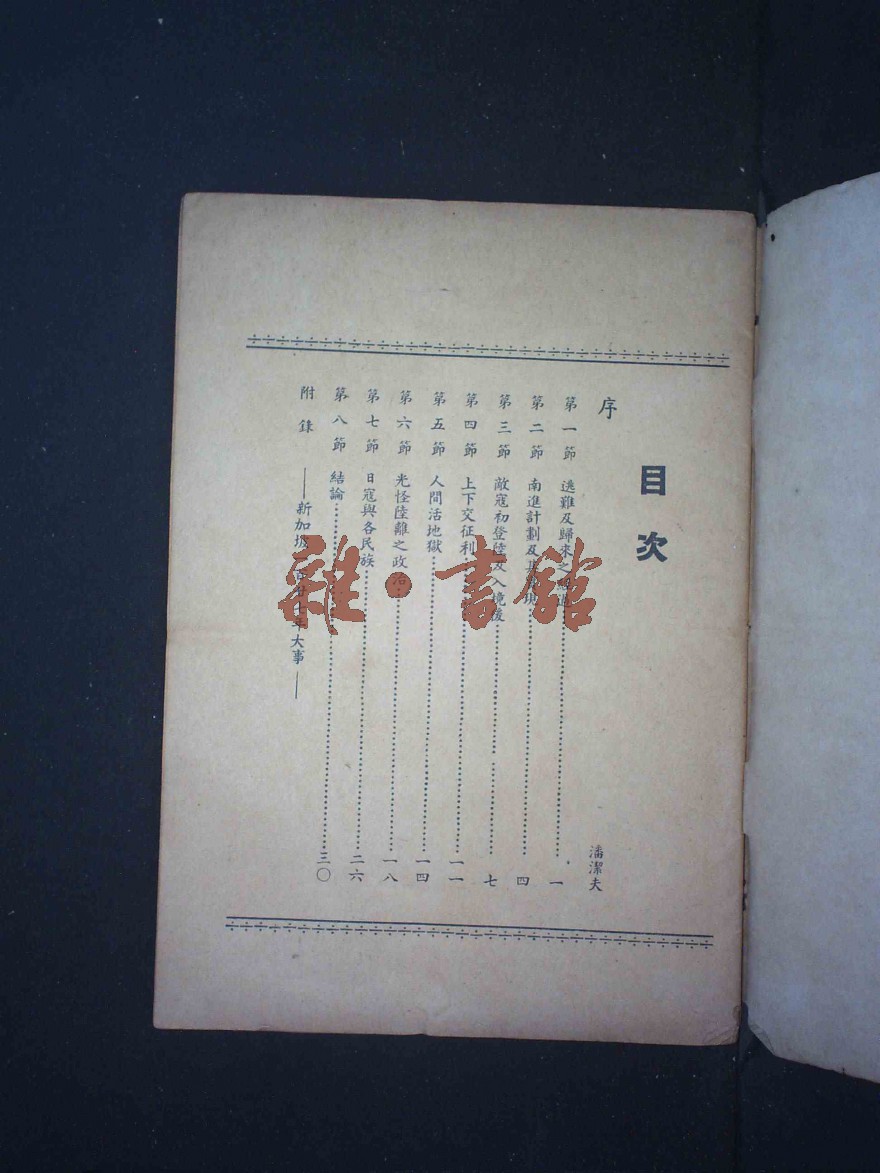 目次
序 潘潔夫
第一節 逃難及歸來之經過 一
第二節 南進計劃及其實現 四
第三節 敵寇初登陸及入境後 七
第四節 上下交征利 一一
第五節 人間活地獄 一四
第六節 光怪陸離之政治 一八
第七節 日寇與各民族 二六
第八節 結論 三〇
附錄 ——新加坡一百廿七年大事——
雜·書館